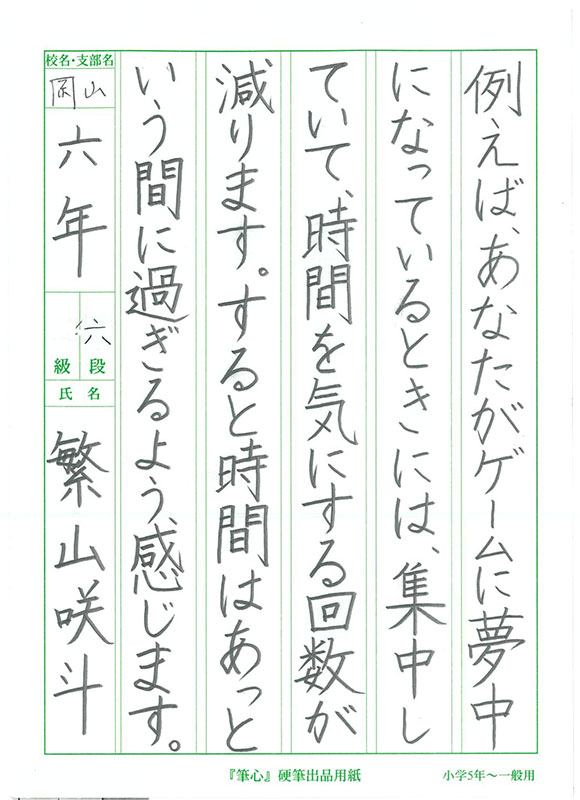 例えば、あなたがゲームに夢中
になっているときには、集中し
ていて、時間を気にする回数が
減ります。すると時間はあっと
いう間に過ぎるよう、感じます。
校名・支部名
岡山
六年
六
級 段
氏名
繁山咲斗
『筆心』硬筆出品用紙
小学5年〜一般用